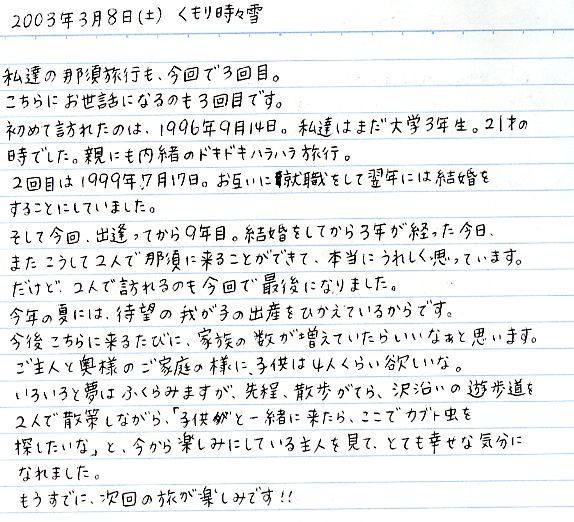 2003年3月8日(土) くもり時々雪
私達の那須旅行も、今回で3回目。
こちらにお世話になるのも3回目です。
初めて訪れたのは、1996年9月14日。私達はまだ大学3年生。21才の
時でした。親にも内緒のドキドキハラハラ旅行。
2回目は1999年7月17日。お互いに就職をして翌年には結婚を
することにしていました。
そして今回、出逢ってから9年目。結婚をしてから3年が経った今日、
またこうして2人で那須に来ることができて、本当にうれしく思っています。
だけど、2人で訪れるのも今回で最後になりました。
今年の夏には、待望の我が子の出産をひかえているからです。
今後こちらに来るたびに、家族の数が増えていたらいいなぁと思います。
ご主人と奥様のご家庭の様に、子供は4人くらい欲しいな。
いろいろと夢はふくらみますが、先程、散歩がてら、沢沿いの遊歩道を
2人で散策しながら、「子供と一緒に来たら、ここでカブト虫を
探したいな」と、今から楽しみにしている主人を見て、とても幸せな気分に
なれました。
もうすでに、次回の旅が楽しみです!!